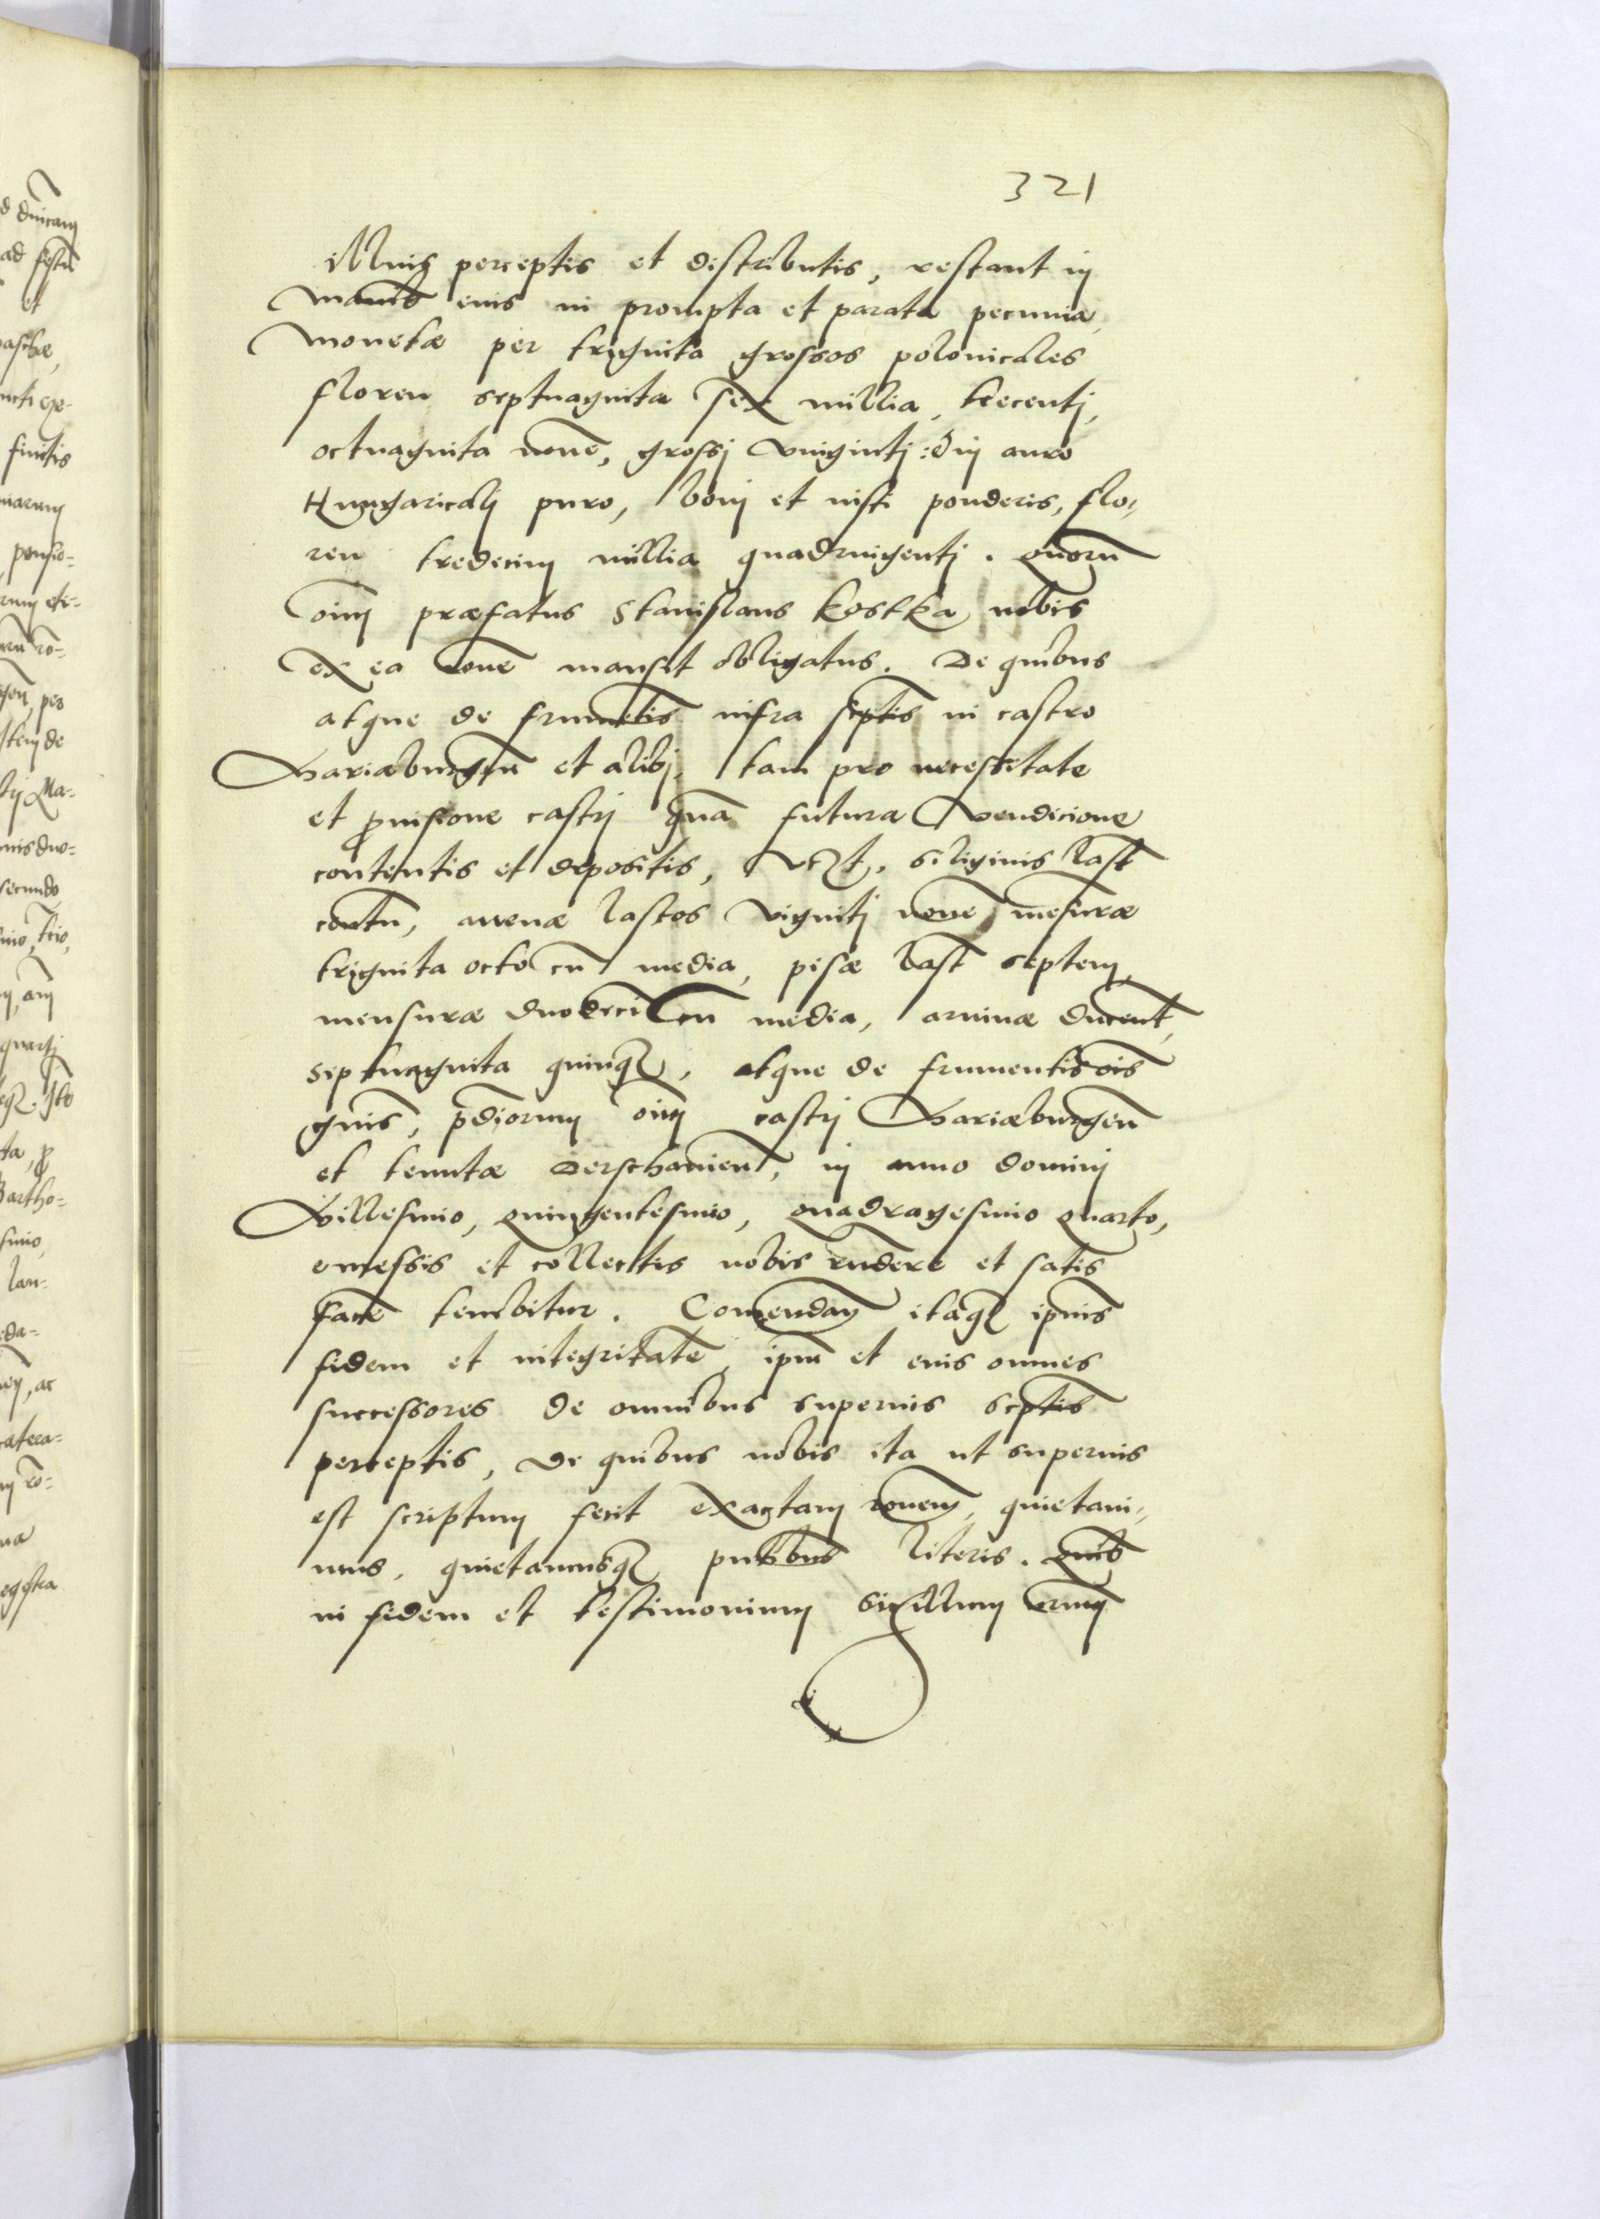 321
illius perceptis et distributis, restant in
manibs eius in prompta et parata pecunia
monetæ per triginta grossos polonicales
floren septuaginta sex millia, trecentj,
octuaginta nouē, grossj viigintj : Din auro
Hungaricalj puro, bonj et iusti ponderis, flo-
ren tredecim millia quadringentj. quorū
oīm præfatus Stanislaus Kostka nobis
ex ea rōne mansit obligatus. De quibus
atque de frumētis infra scptis in castro
Mariæburgēn et alibj, tam pro necessitate
et puisione castrj quā futura vendicione
contentis et depositis, vczt. siliginis last
centū, auenæ lastos vigintj nouē mēsuræ
triginta octo cū media, pisæ last septem,
mensuræ duodecī cū media, aruinæ ducent,
septuaginta quinqꝫ, atque de frumentis oīs
gnīs, pdiorum oīm castrj Mariæburgēn
et tenutæ Derschauien, in anno dominj
Millesimo, quingentesimo, quadragesimo quarto,
emessis et collectis nobis rndere et satis
facē tenebitur. Comendan itaqꝫ ipius
fidem et integritatē, ipm et eius omnes
successores de omnibus superius scptis
perceptis, de quibus nobis ita ut superius
est scriptum fecit exactam rōnem, quietaui-
mus, quietamusqꝫ pntibus literis. Quibs
in fidem et testimonium sigillum nrum